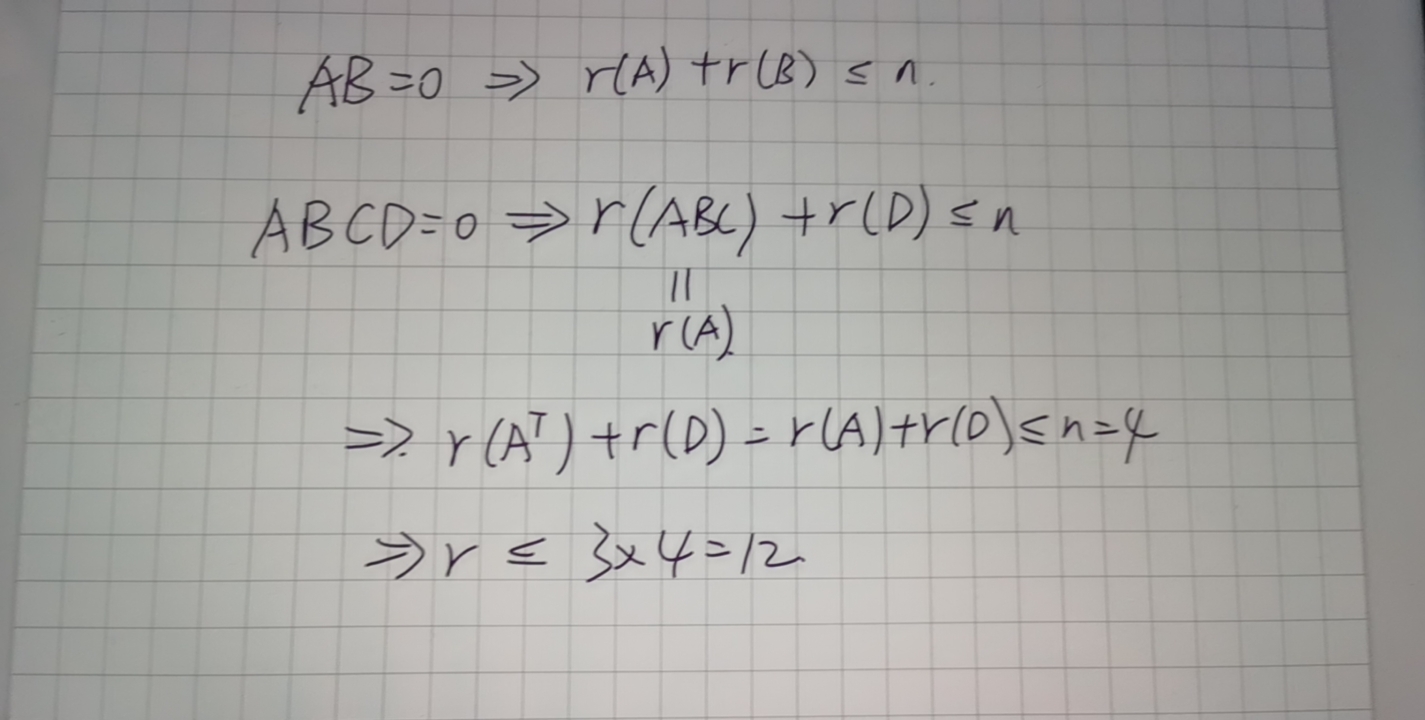 AB=0 ⇒ r(A)+r(B) ≤ n.
ABCD=0 ⇒ r(ABC)+r(D) ≤ n
||
r(A).
⇒. r(Aᵀ)+r(D) = r(A)+r(D) ≤ n=4
⇒ r ≤ 3×4=12